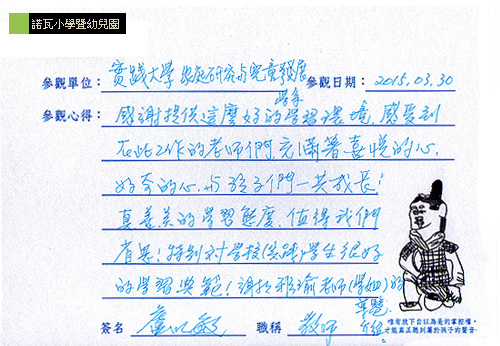 諾瓦小學暨幼兒園
參觀單位：實踐大學 家庭研究與兒童發展
學系
參觀日期：2015.03.30
參觀心得：感謝提供這麼好的學習環境，感受到
在此工作的老師們，充滿著喜悅的心，
好奇的心，与孩子們一共成長！
真善美的學習態度，值得我們
省思！特別对學校(實踐)學生很好
的學習典範！謝謝 老師(學姐)的
簽名
職稱 教師
介紹。
唯有放下自以為是的掌控權，
才能真正聽到屬於孩子的聲音